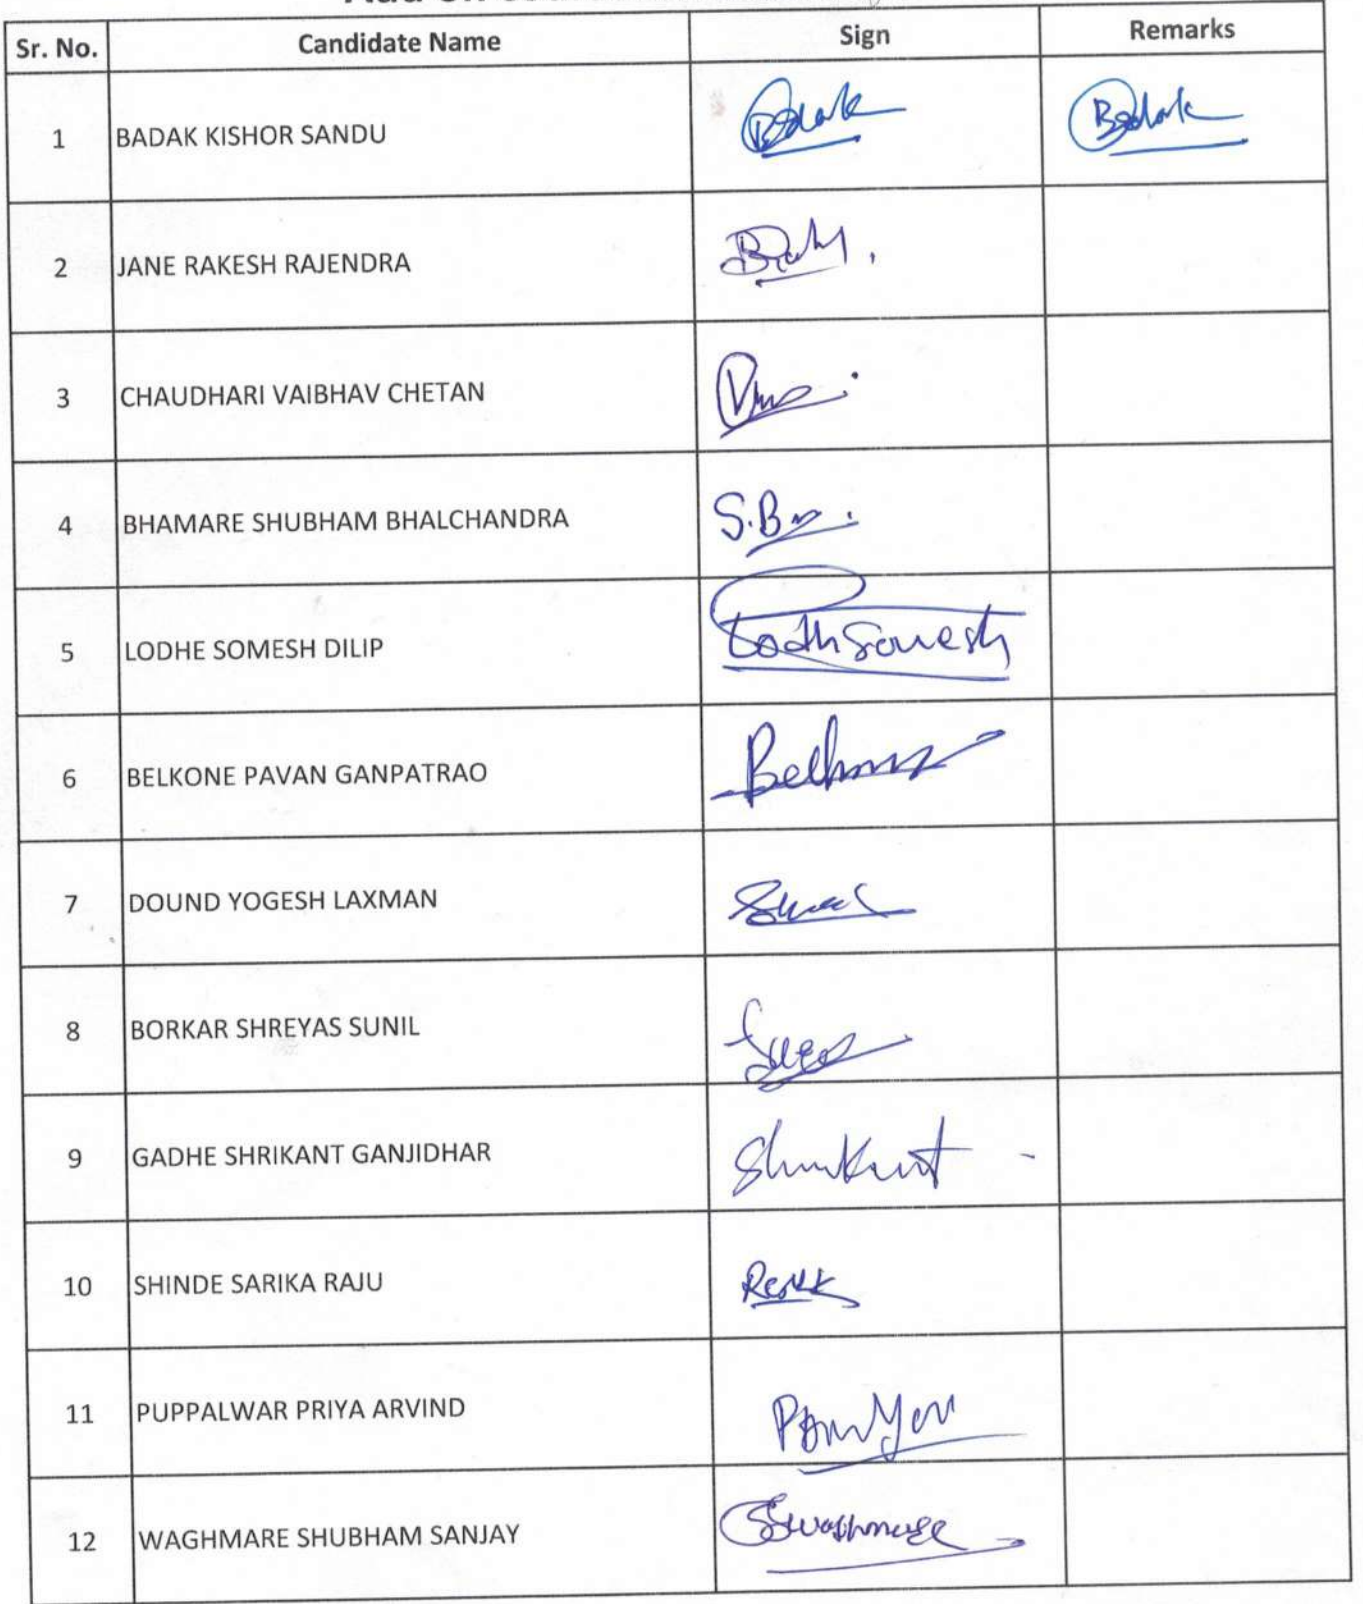 Sr. No. Candidate Name Sign Remarks
1 BADAK KISHOR SANDU Badak Badak
2 JANE RAKESH RAJENDRA
3 CHAUDHARI VAIBHAV CHETAN
4 BHAMARE SHUBHAM BHALCHANDRA
5 LODHE SOMESH DILIP
6 BELKONE PAVAN GANPATRAO
7 DOUND YOGESH LAXMAN
8 BORKAR SHREYAS SUNIL
9 GADHE SHRIKANT GANJIDHAR
10 SHINDE SARIKA RAJU
11 PUPPALWAR PRIYA ARVIND
12 WAGHMARE SHUBHAM SANJAY